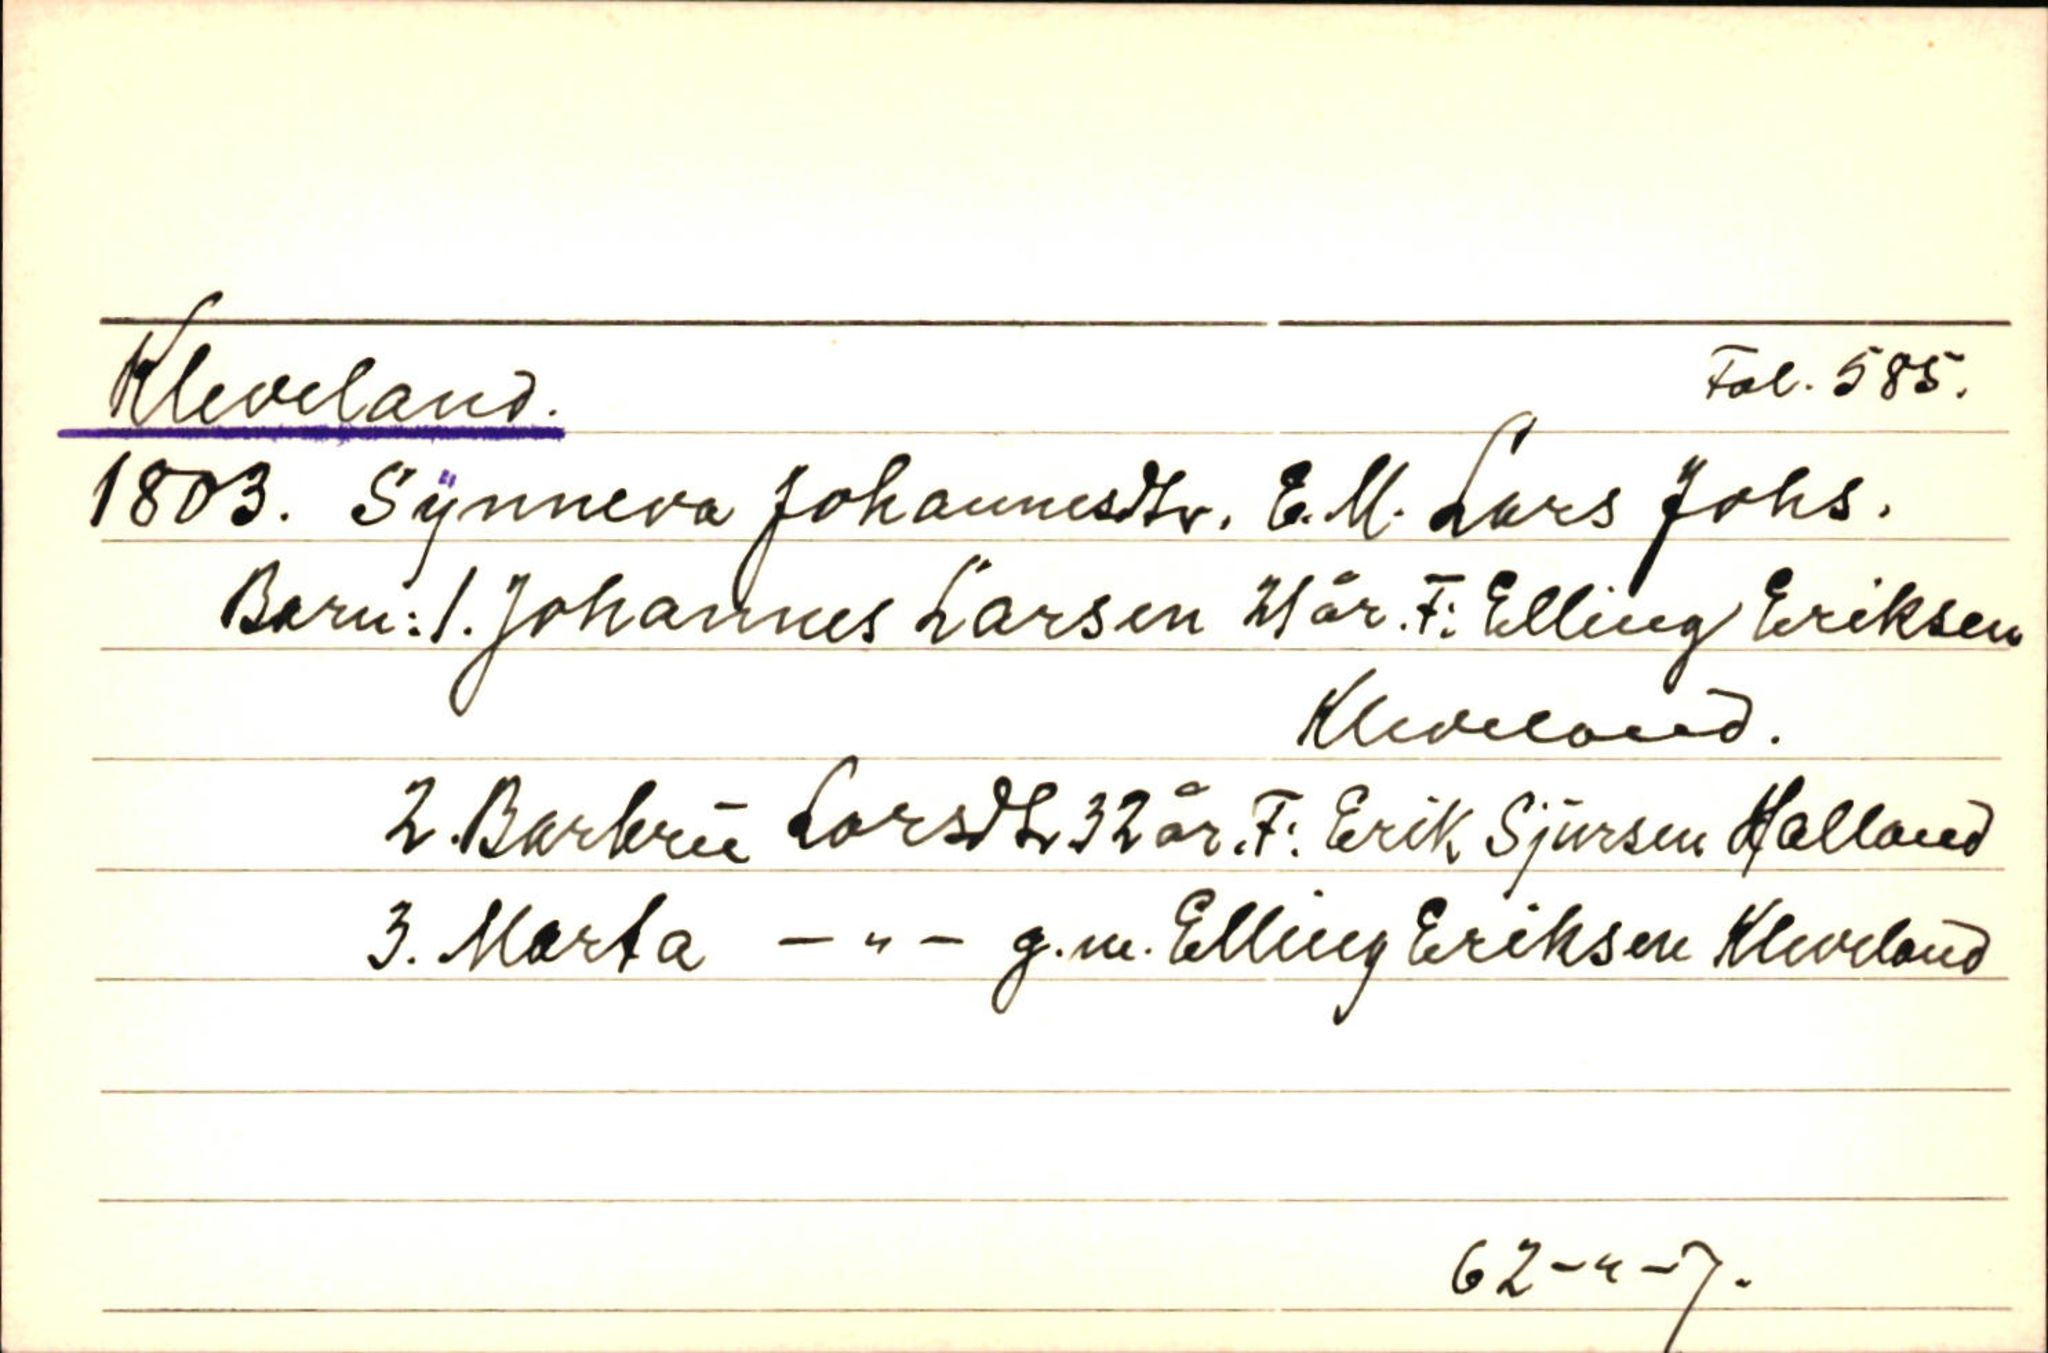 Kleveland.
Fol. 585.
1803. Synneva Johannesdtr. E.M. Lars Johs.
Barn: 1. Johannes Larsen 21 år. F: Elling Eriksen
Kleveland.
2. Barbru Larsdtr 32 år. F: Erik Sjursen Halland
3. Marta — " — g.m. Elling Eriksen Kleveland
62 - " - 7.